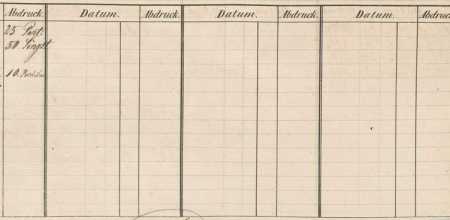 Abdruck. Datum. Abdruck. Datum. Abdruck. Datum. Abdruck
25 Part.
50 Singst.
10.